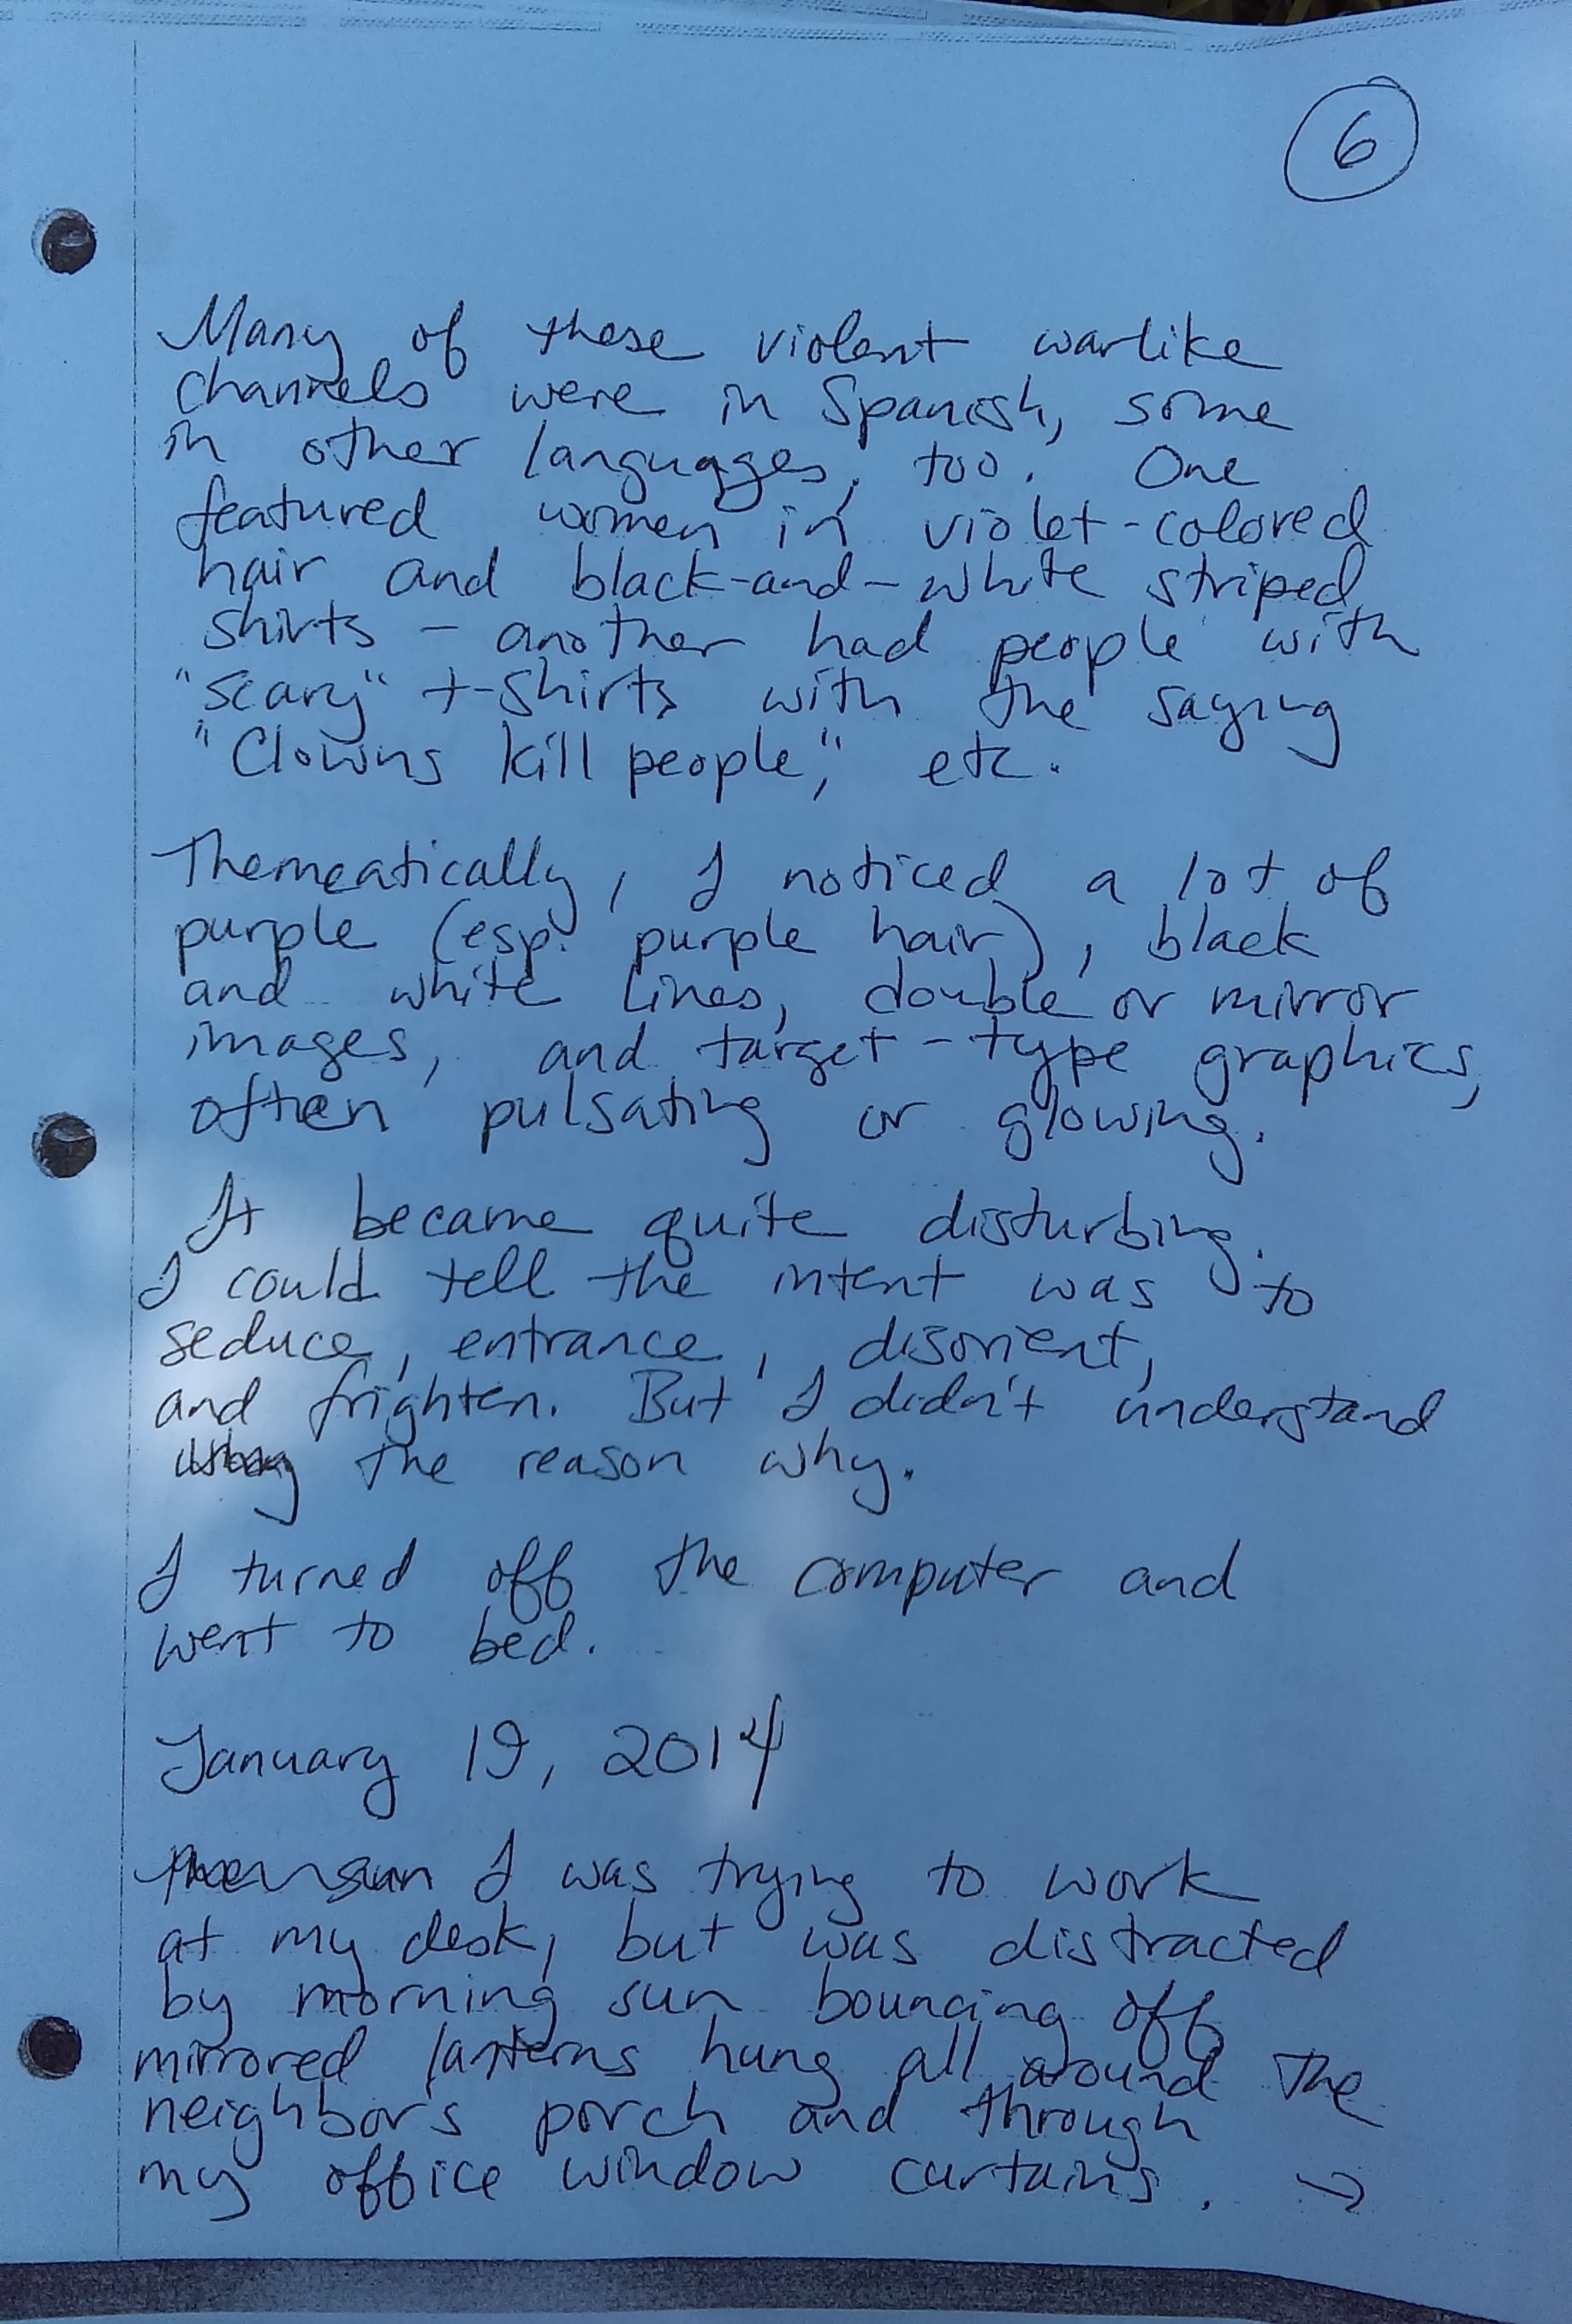 6
Many of these violent warlike
channels were in Spanish, some
in other languages, too. One
featured women in violet-colored
hair and black-and-white striped
shirts - another had people with
"scary" t-shirts with the saying
"Clowns kill people," etc.
Themeatically, I noticed a lot of
purple (esp. purple hair), black
and white lines, double or mirror
images, and target-type graphics,
often pulsating or glowing.
It became quite disturbing.
I could tell the intent was to
seduce, entrance, disorient,
and frighten. But I didn't understand
the reason why.
I turned off the computer and
went to bed.
January 19, 2014
I was trying to work
at my desk, but was distracted
by morning sun bouncing off
mirrored lanterns hung all around the
neighbor's porch and through
my office window curtains. →